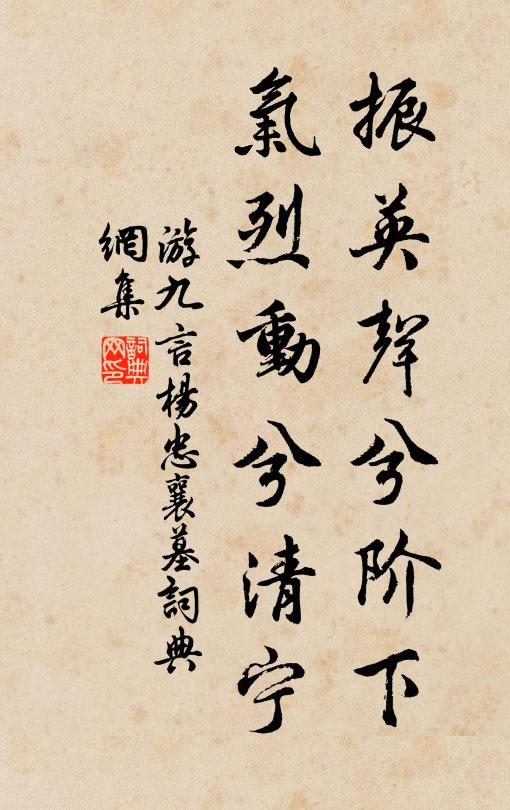 振英聲兮阶下
氣烈動兮清宁
游九言楊忠襄墓詞典
網集
詞典網印